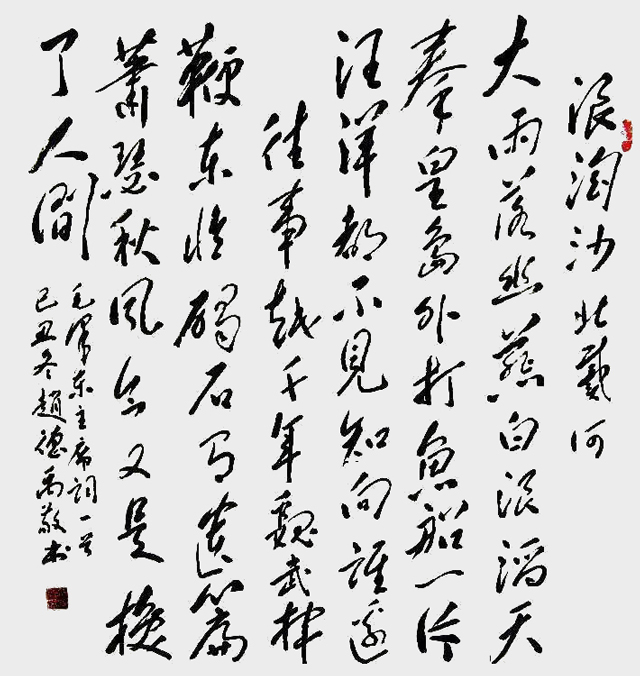 浪淘沙 北戴河
大雨落幽燕白浪滔天
秦皇島外打魚船一片
汪洋都不見知向誰邊
往事越千年魏武揮
鞭东临碣石有遺篇
蕭瑟秋風今又是換
了人间
毛泽东主席词一首
己丑冬趙德禹敬书